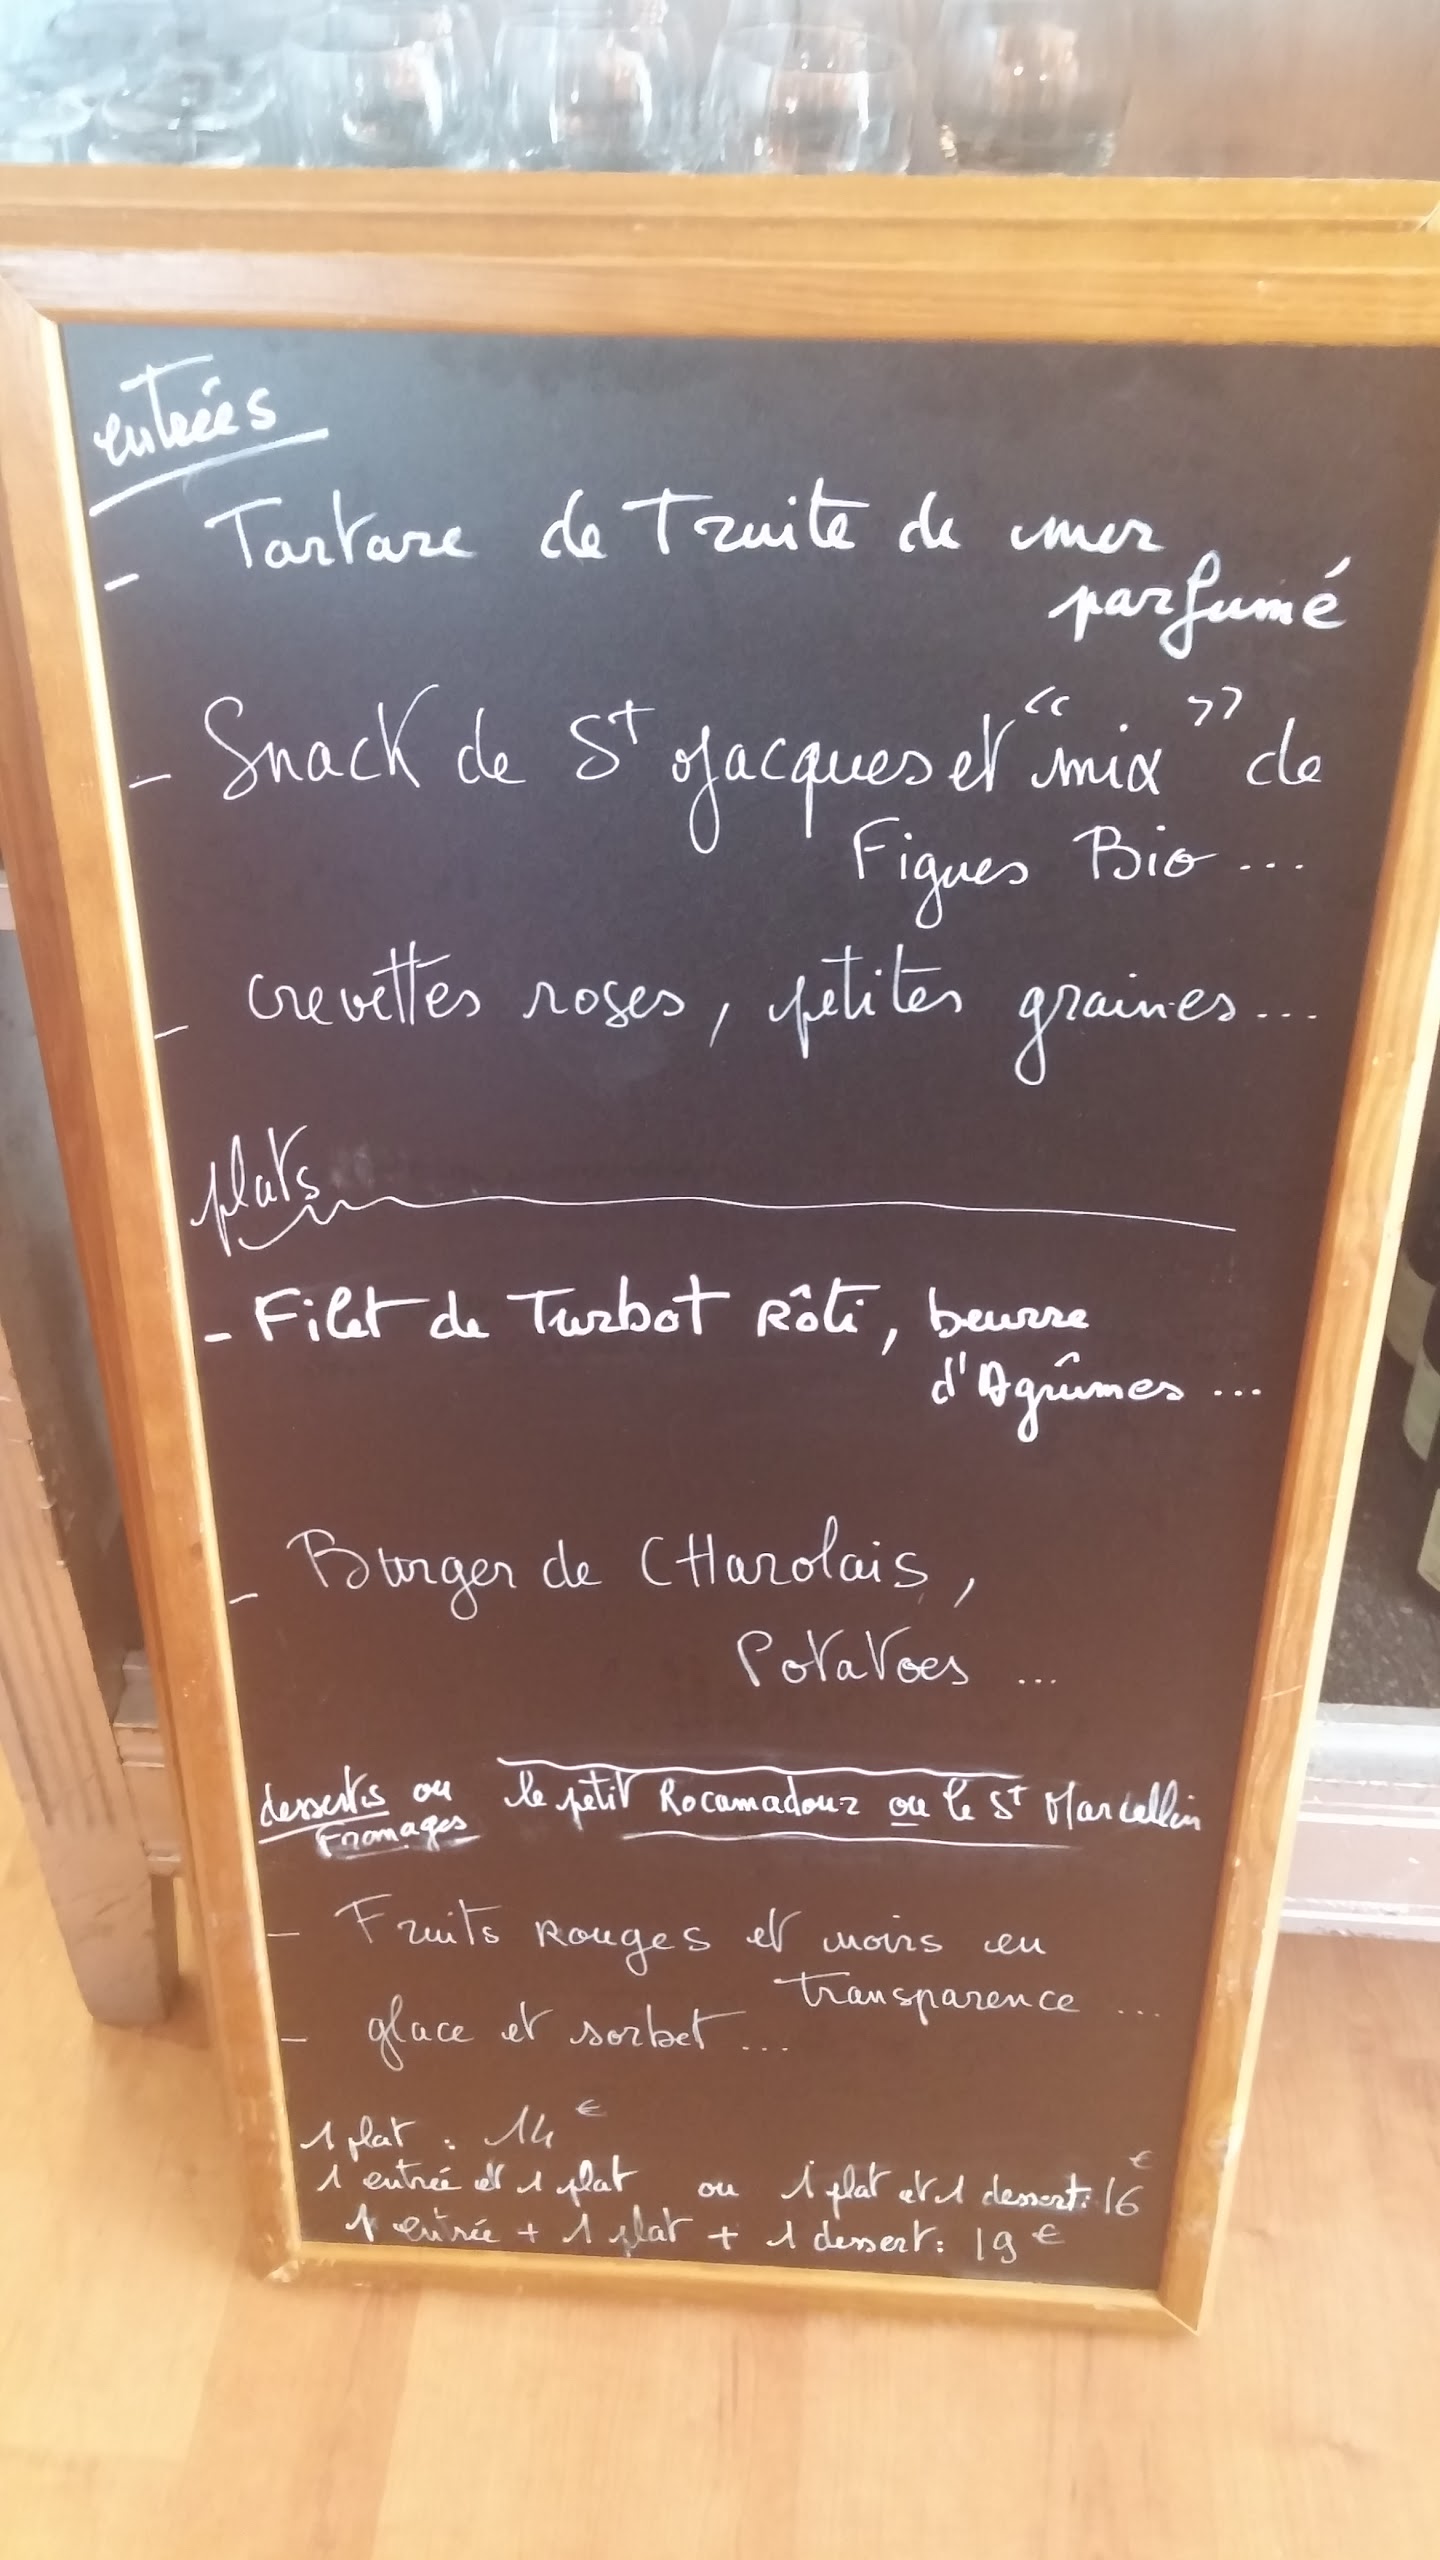 entrées
- Tartare de Truite de mer
parfumé
- Snack de St Jacques et "mix" de
Figues Bio ...
- crevettes roses, petites graines...
plats
- Filet de Turbot Rôti, beurre
d'Agrûmes ...
- Burger de CHarolais,
Potatoes ...
desserts ou le petit Rocamadour ou le St Marcellin
Fromages
- Fruits Rouges et noirs en
transparence ...
- glace et sorbet ...
1 plat : 14 €
1 entrée et 1 plat ou 1 plat et 1 dessert: 16 €
1 entrée + 1 plat + 1 dessert: 19 €